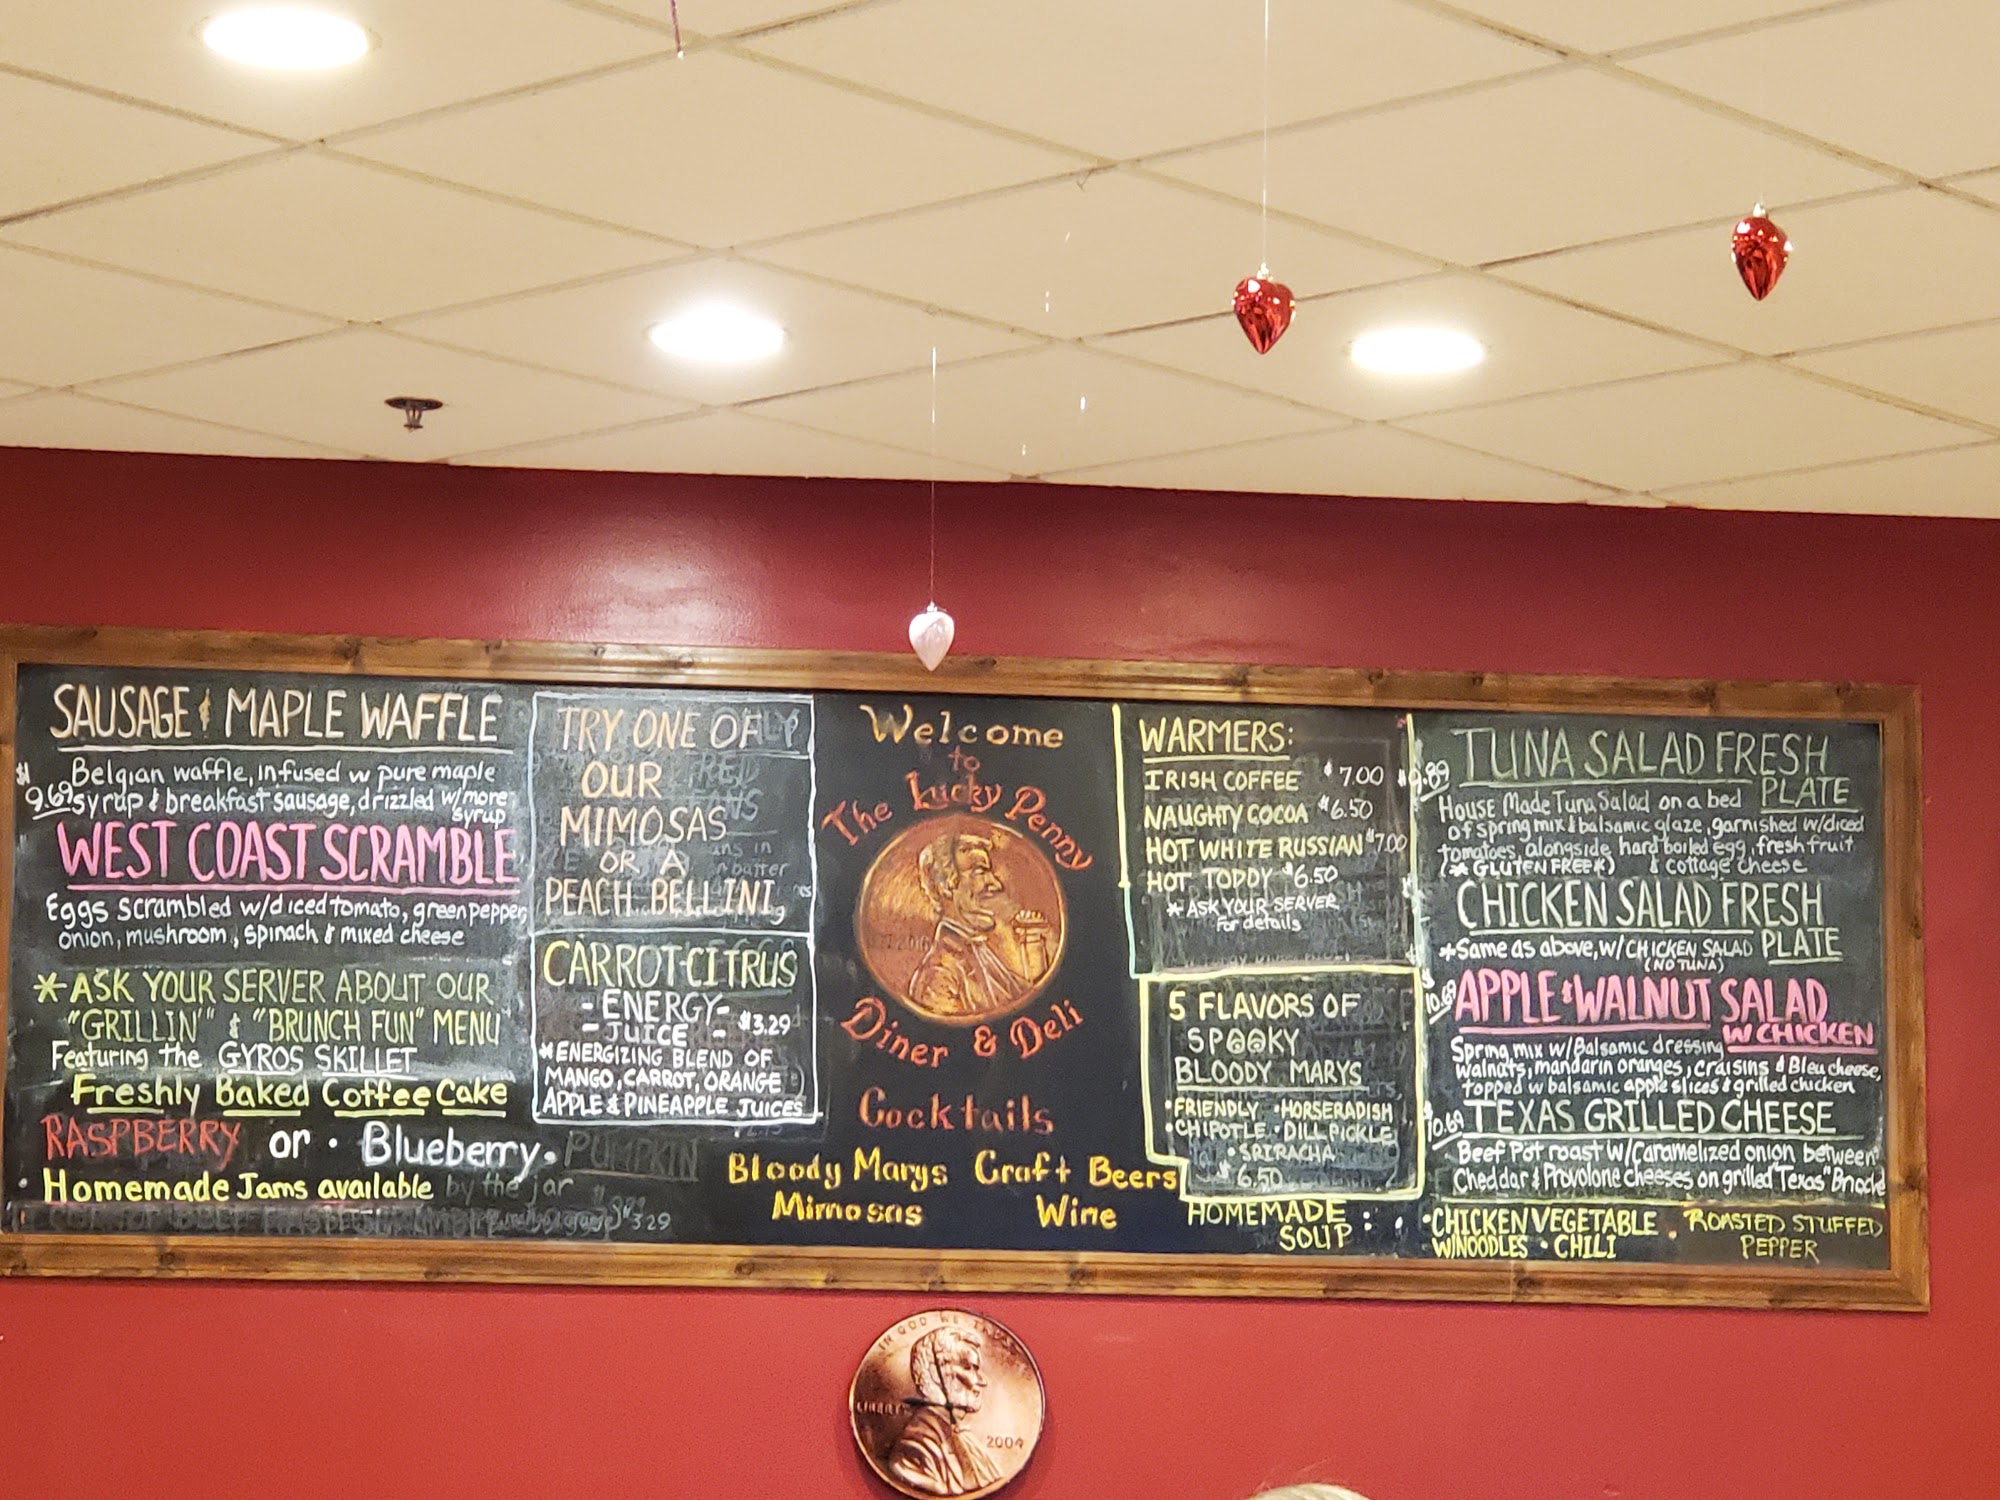 SAUSAGE & MAPLE WAFFLE
Belgian waffle, infused w pure maple
$9.69 syrup & breakfast sausage, drizzled w/more
syrup
WEST COAST SCRAMBLE
Eggs scrambled w/diced tomato, green pepper,
onion, mushroom, spinach & mixed cheese
*ASK YOUR SERVER ABOUT OUR
"GRILLIN'" & "BRUNCH FUN" MENU
Featuring the GYROS SKILLET
Freshly Baked Coffee Cake
RASPBERRY or • Blueberry • PUMPKIN
• Homemade Jams available by the jar
$3.29
TRY ONE OF
OUR
MIMOSAS
OR A
PEACH BELLINI
CARROT-CITRUS
-ENERGY-
-JUICE- $3.29
*ENERGIZING BLEND OF
MANGO, CARROT, ORANGE
APPLE & PINEAPPLE JUICES
Welcome
to
The Lucky Penny
Diner & Deli
Cocktails
Bloody Marys Craft Beers
Mimosas Wine
WARMERS:
IRISH COFFEE $7.00
NAUGHTY COCOA $6.50
HOT WHITE RUSSIAN $7.00
HOT TODDY $6.50
*ASK YOUR SERVER
For details
5 FLAVORS OF
SPOOKY
BLOODY MARYS
•FRIENDLY •HORSERADISH
•CHIPOTLE •DILL PICKLE
•SRIRACHA
$6.50
HOMEMADE
SOUP : •
$9.89 TUNA SALAD FRESH
PLATE
House Made Tuna Salad on a bed
of spring mix & balsamic glaze, garnished w/diced
tomatoes alongside hard boiled egg, fresh fruit
(*GLUTEN FREE*) & cottage cheese
CHICKEN SALAD FRESH
*Same as above, w/CHICKEN SALAD PLATE
(NO TUNA)
$10.69 APPLE & WALNUT SALAD
W CHICKEN
Spring mix w/Balsamic dressing
walnuts, mandarin oranges, craisins & Bleu cheese,
topped w balsamic apple slices & grilled chicken
$10.69 TEXAS GRILLED CHEESE
Beef Pot roast w/Caramelized onion between
Cheddar & Provolone cheeses on grilled "Texas" Brioche
•CHICKEN VEGETABLE • ROASTED STUFFED
W/NOODLES • CHILI PEPPER
IN GOD WE TRUST
LIBERTY
2004